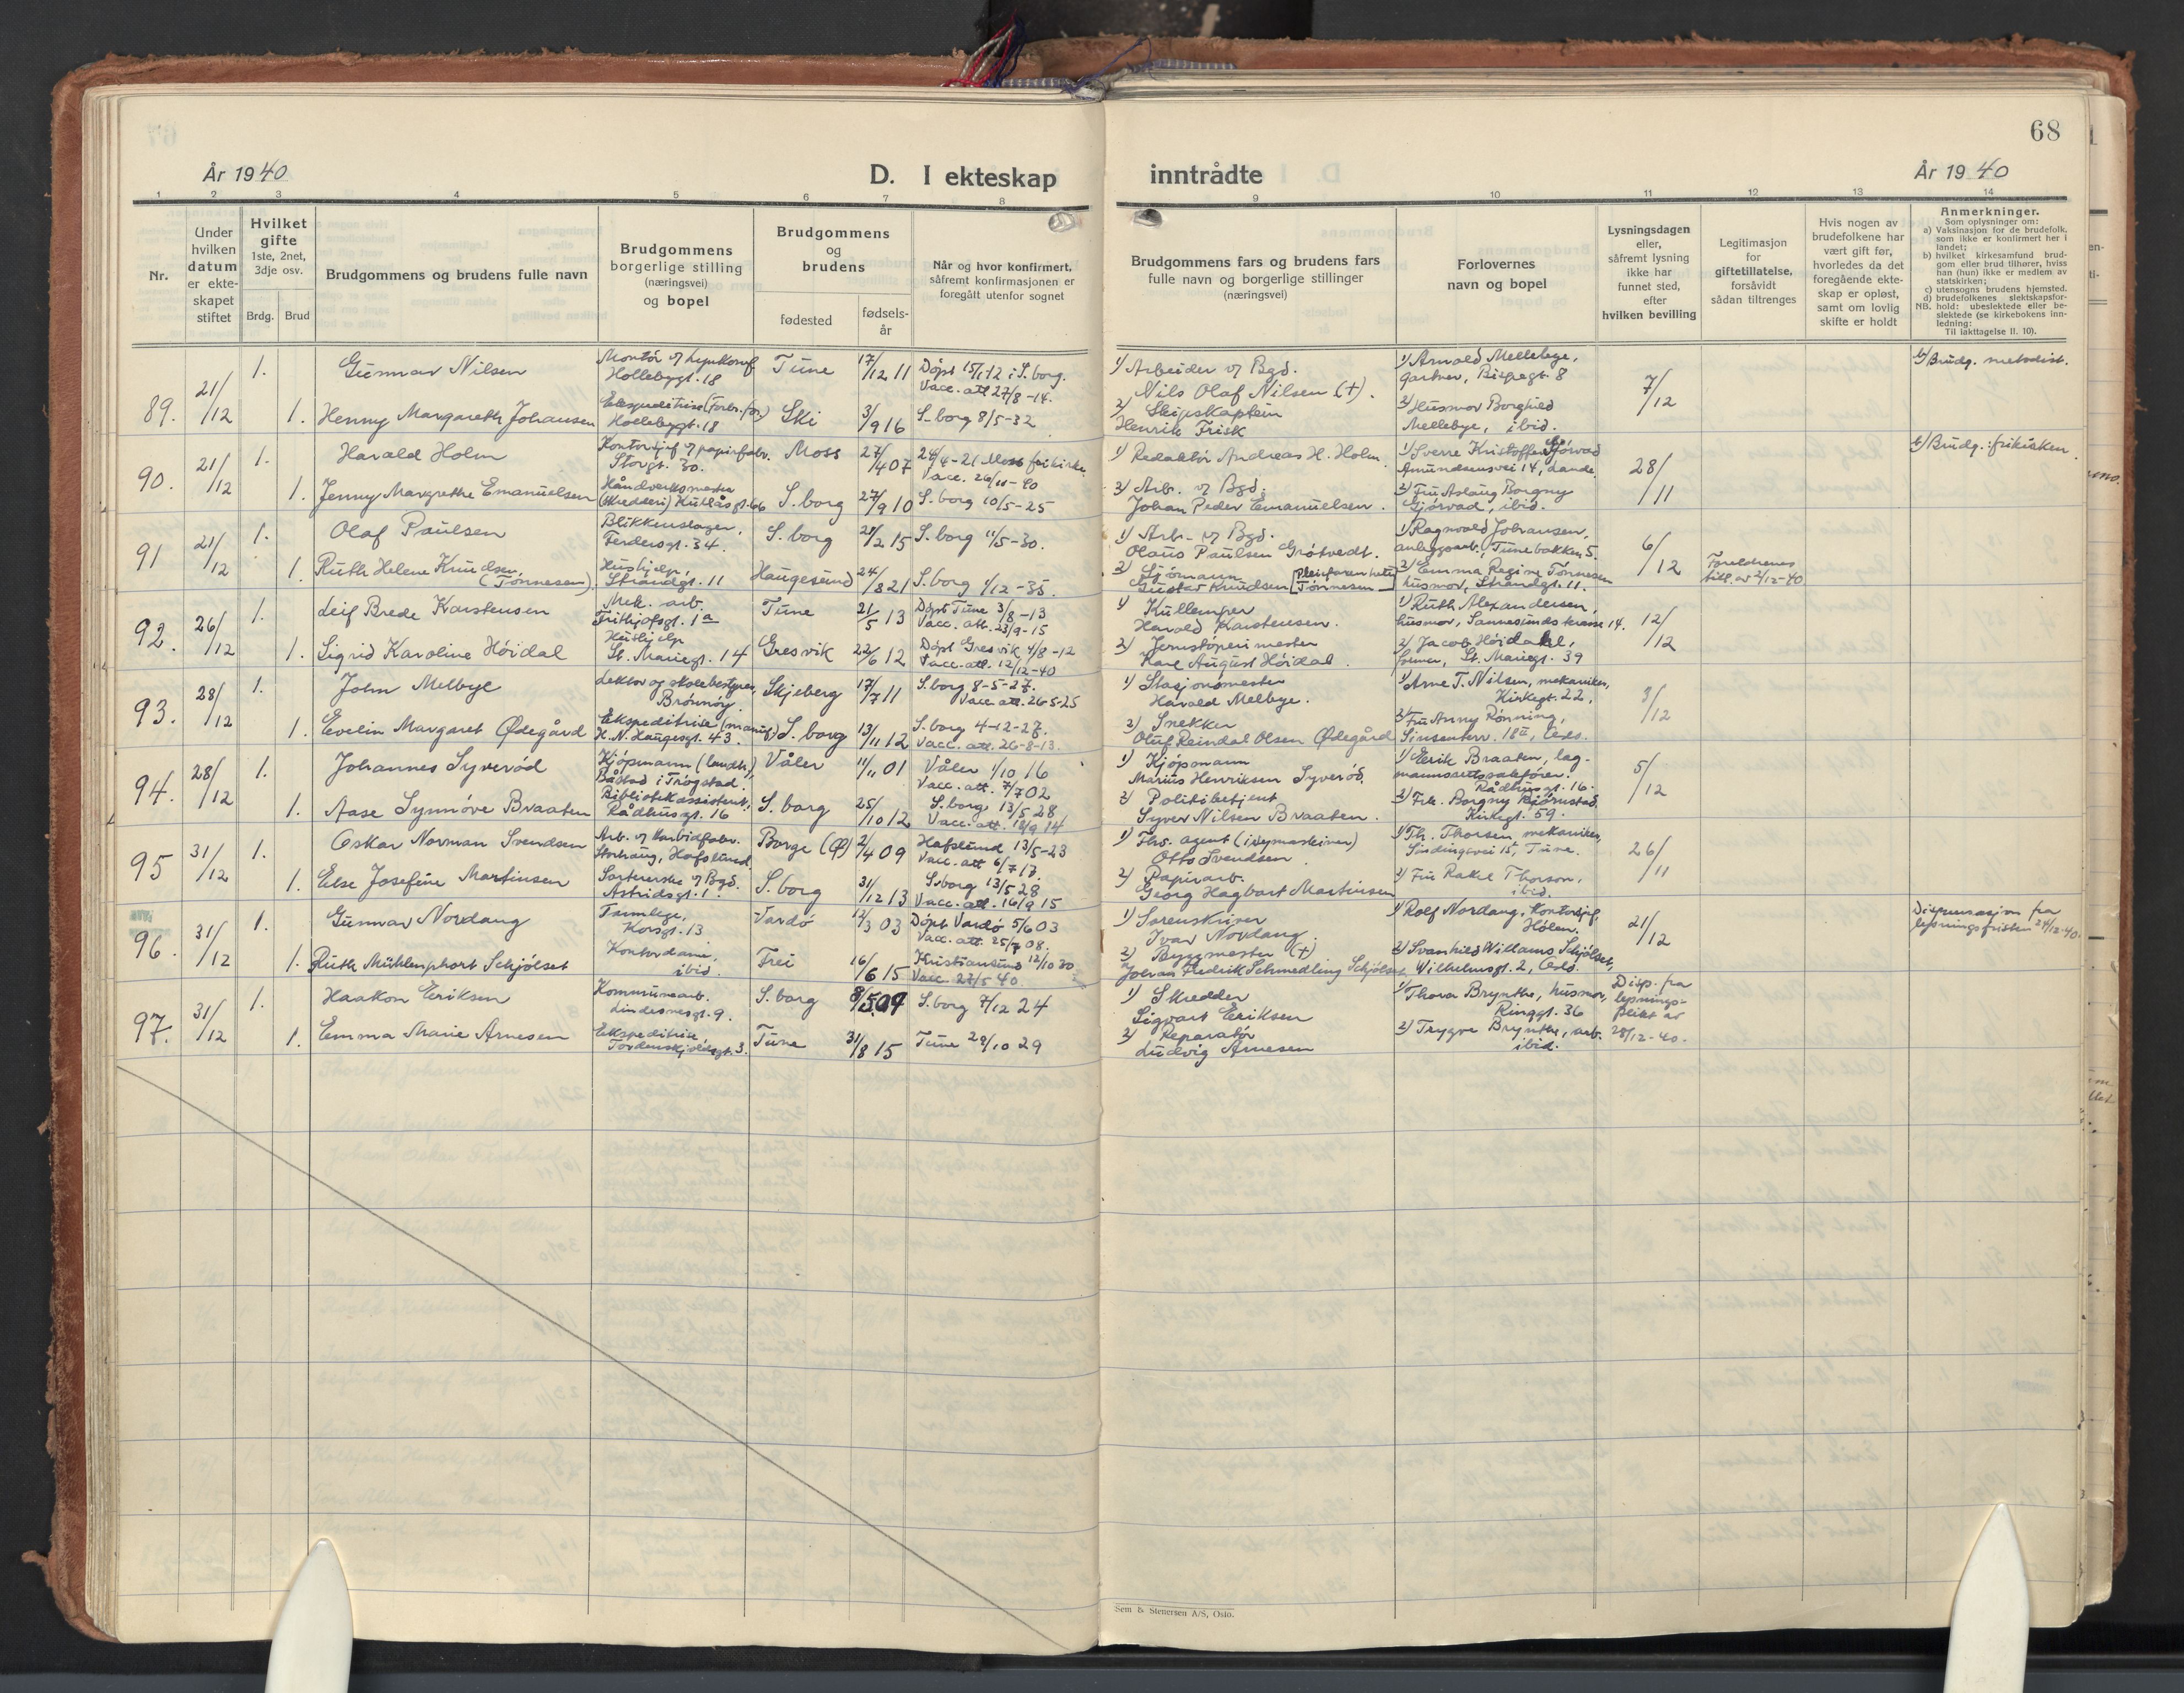 68
År 1940
D. I ekteskap
inntrådte
År 1940
1 2 3 4 5 6 7 8
9 10 11 12 13 14
Nr.
Under hvilken datum er ekte-skapet stiftet
Hvilket gifte 1ste, 2net, 3dje osv.
Brdg. Brud
Brudgommens og brudens fulle navn
Brudgommens borgerlige stilling (næringsvei) og bopel
Brudgommens og brudens
fødested
fødsels-år
Når og hvor konfirmert, såfremt konfirmasjonen er foregått utenfor sognet
Brudgommens fars og brudens fars fulle navn og borgerlige stillinger (næringsvei)
Forlovernes navn og bopel
Lysningsdagen eller, såfremt lysning ikke har funnet sted, efter hvilken bevilling
Legitimasjon for giftetillatelse, forsåvidt sådan tiltrenges
Hvis nogen av brudefolkene har vært gift før, hvorledes da det foregående ekte-skap er opløst, samt om lovlig skifte er holdt
Anmerkninger.
Som oplysninger om:
a) Vaksinasjon for de brudefolk, som ikke er konfirmert her i landet;
b) hvilket kirkesamfund brud-gom eller brud tilhører, hviss han (hun) ikke er medlem av statskirken;
c) utensogns brudens hjemsted.
d) brudefolkenes slektskapsfor-hold: ubeslektede eller be-slektede (se kirkebokens inn-ledning:
NB. Til iakttagelse II. 10).
89. 21/12 1. Gunnar Nilsen
Montør v/
Hollebygt. 18
Tune 17/12 11 Døpt 15/1-12 i S.borg.
Vacc. att 27/8-14.
1) Arbeider v/ Bgd.
Nils Olaf Nilsen (†).
1) Arnold Mellebye,
gartner, Bispegt. 8
7/12
b/ Brudg. metodist.
1. Henny Margareth Johansen
Ekspeditrise (Forbr.for.)
Hollebygt. 18
Ski 3/9 16 S.borg 8/5-32
2) Skipskaptein
Henrik Frisk
2) Husmor Borghild
Mellebye, ibid.
90. 21/12 1. Harald Holm
Kontorsjef v/ papirfabr.
Storgt. 30.
Moss 27/4 07 24/4-21 Moss frikirke
Vacc. 26/11-40
1) Redaktør Andreas H. Holm
1) Sverre Kristoffer Gjørvad
Amundsensvei 14, Lande
28/11
b/ Brudg.: frikirken
1. Jenny Margrethe Emanuelsen
Håndverksmester
(skredderi) Kutlåsgt. 66
S.borg 27/9 10 S.borg 10/5-25
2) Arb. v/ Bgd.
Johan Peder Emanuelsen.
2) Fru Aslaug Borgny
Gjørvad, ibid.
91 21/12 1. Olaf Paulsen
Blikkenslager,
Ferdersgt. 34.
S.borg 28/2 15 S.borg 11/5-30.
1) Arb. v/ Bgd.
Olaus Paulsen Grøtvedt.
1) Ragnvald Johansen,
anleggsarb., Tunebakken 5.
6/12
Foreldrenes
till. av 2/12-40
1. Ruth Helene Knudsen
(Tønnesen)
Hushjelp,
Strandgt. 11
Haugesund 24/8 21 S.borg 1/12-35.
2) Sjømann
Gustav Knudsen [Pleiefaren heter Tønnesen]
2) Emma Regine Tønnesen
husmor, Strandgt. 11.
92. 26/12 1. Leif Brede Karstensen
Mek. arb.
Frithjofsgt. 1a
Tune 21/5 13 Døpt Tune 3/8-13
Vacc. att. 23/9-15
1) Kullemper
Harald Karstensen.
1) Ruth Alexandersen,
husmor, Sannesunds krasse 14.
12/12
1. Sigrid Karoline Høidal
Hushjelp
St. Mariegt. 14
Gresvik 22/6 12 Døpt Gresvik 4/8-12
Vacc. att. 12/12-40
2) Jernstøperimester
Karl August Høidal.
2) Jacob Høidahl,
former, St. Mariegt. 39
93. 28/12 1. John Melbye
Lektor og skolebestyrer,
Brønnøy.
Skjeberg 17/7 11 S.borg 8-5-27.
Vacc. att. 26-5-25
1) Stasjonsmester
Harald Melbye.
1) Arne T. Nilsen, mekaniker,
Kirkegt. 22.
3/12
1. Evelin Margaret Ødegård
Ekspeditrise (manuf.)
H.N. Haugesgt. 43.
S.borg 13/11 12 S.borg 4-12-27.
Vacc. att. 26-8-13.
2) Snekker
Oluf Reindal Olsen Ødegård
2) Fru Anny Rønning,
Sinsenterr. 18 II, Oslo.
94. 28/12 1. Johannes Syverød
Kjøpmann (landh.)
Båstad i Trøgstad.
Våler 11/11 01 Våler 1/10 16
Vacc. att. 7/7 02
1) Kjøpmann
Marius Henriksen Syverød.
1) Eerik Braaten, lag-
mannsrettssakfører.
Rådhusgt. 16.
5/12
1. Aase Synnøve Braaten
Bibliotekassistent,
Rådhusgt. 16
S.borg 25/10 12 S.borg 13/5 28
Vacc. att. 18/9 14
2) Politibetjent
Syver Nilsen Braaten.
2) Frk. Borgny Bjørnstad
Kirkegt. 59.
95 31/12 1. Oskar Norman Svendsen
Arb. v/ karbidfabr.
Storhaug, Hafslund
Borge (Ø) 2/4 09 Hafslund 13/5-23
Vacc. att 6/7 13.
1) Fhv. agent (i symaskiner)
Otto Svendsen.
1) Th. Thorsen, mekaniker,
Sindingsvei 15, Tune.
26/11
1. Else Josefine Martinsen
Sorterske v/ Bgd.
Astridsgt. 1.
S.borg 31/12 13 S.borg 13/5 28
Vacc. att. 16/9 15
2) Papirarb.
Georg Hagbart Martinsen
2) Fru Rakel Thorson,
ibid.
96. 31/12 1. Gunnar Nordang
Tannlege,
Korsgt. 13
Vardø 12/3 03 Døpt Vardø 5/6 03
Vacc. att. 25/7 08.
1) Sorenskriver
Ivar Nordang.
1) Rolf Nordang, Kontorsjef,
Hølen.
21/12
Dispensasjon fra
lysningsfristen 24/12-40.
1. Ruth Mühlenphort Schjølset
Kontordame,
ibid.
Frei 16/6 15 Kristiansund 12/10 30
Vacc. 22/5 40
2) Byggmester (†)
Johan Fredrik Schmedling Schjølset
2) Svanhild Willams Schjølset,
Wilhelmsgt. 2, Oslo.
97. 31/12 1. Haakon Eriksen
Kommunearb.
Lindesnesgt. 9.
S.borg 8/5 09 S.borg 7/12 24
1) Skredder
Sigvart Eriksen
1) Thora Brynthe, husmor,
Ringgt. 36
Disp. fra
lysnings-
plikt av
28/12-40.
1. Emma Marie Arnesen
Ekspeditrise
Tordenskjoldsgt. 3.
Tune 31/8 15 Tune 29/10 29
2) Reparatør
Ludvig Arnesen
2) Trygve Brynthe, arb.
ibid.
Sem & Stenersen A/S, Oslo.